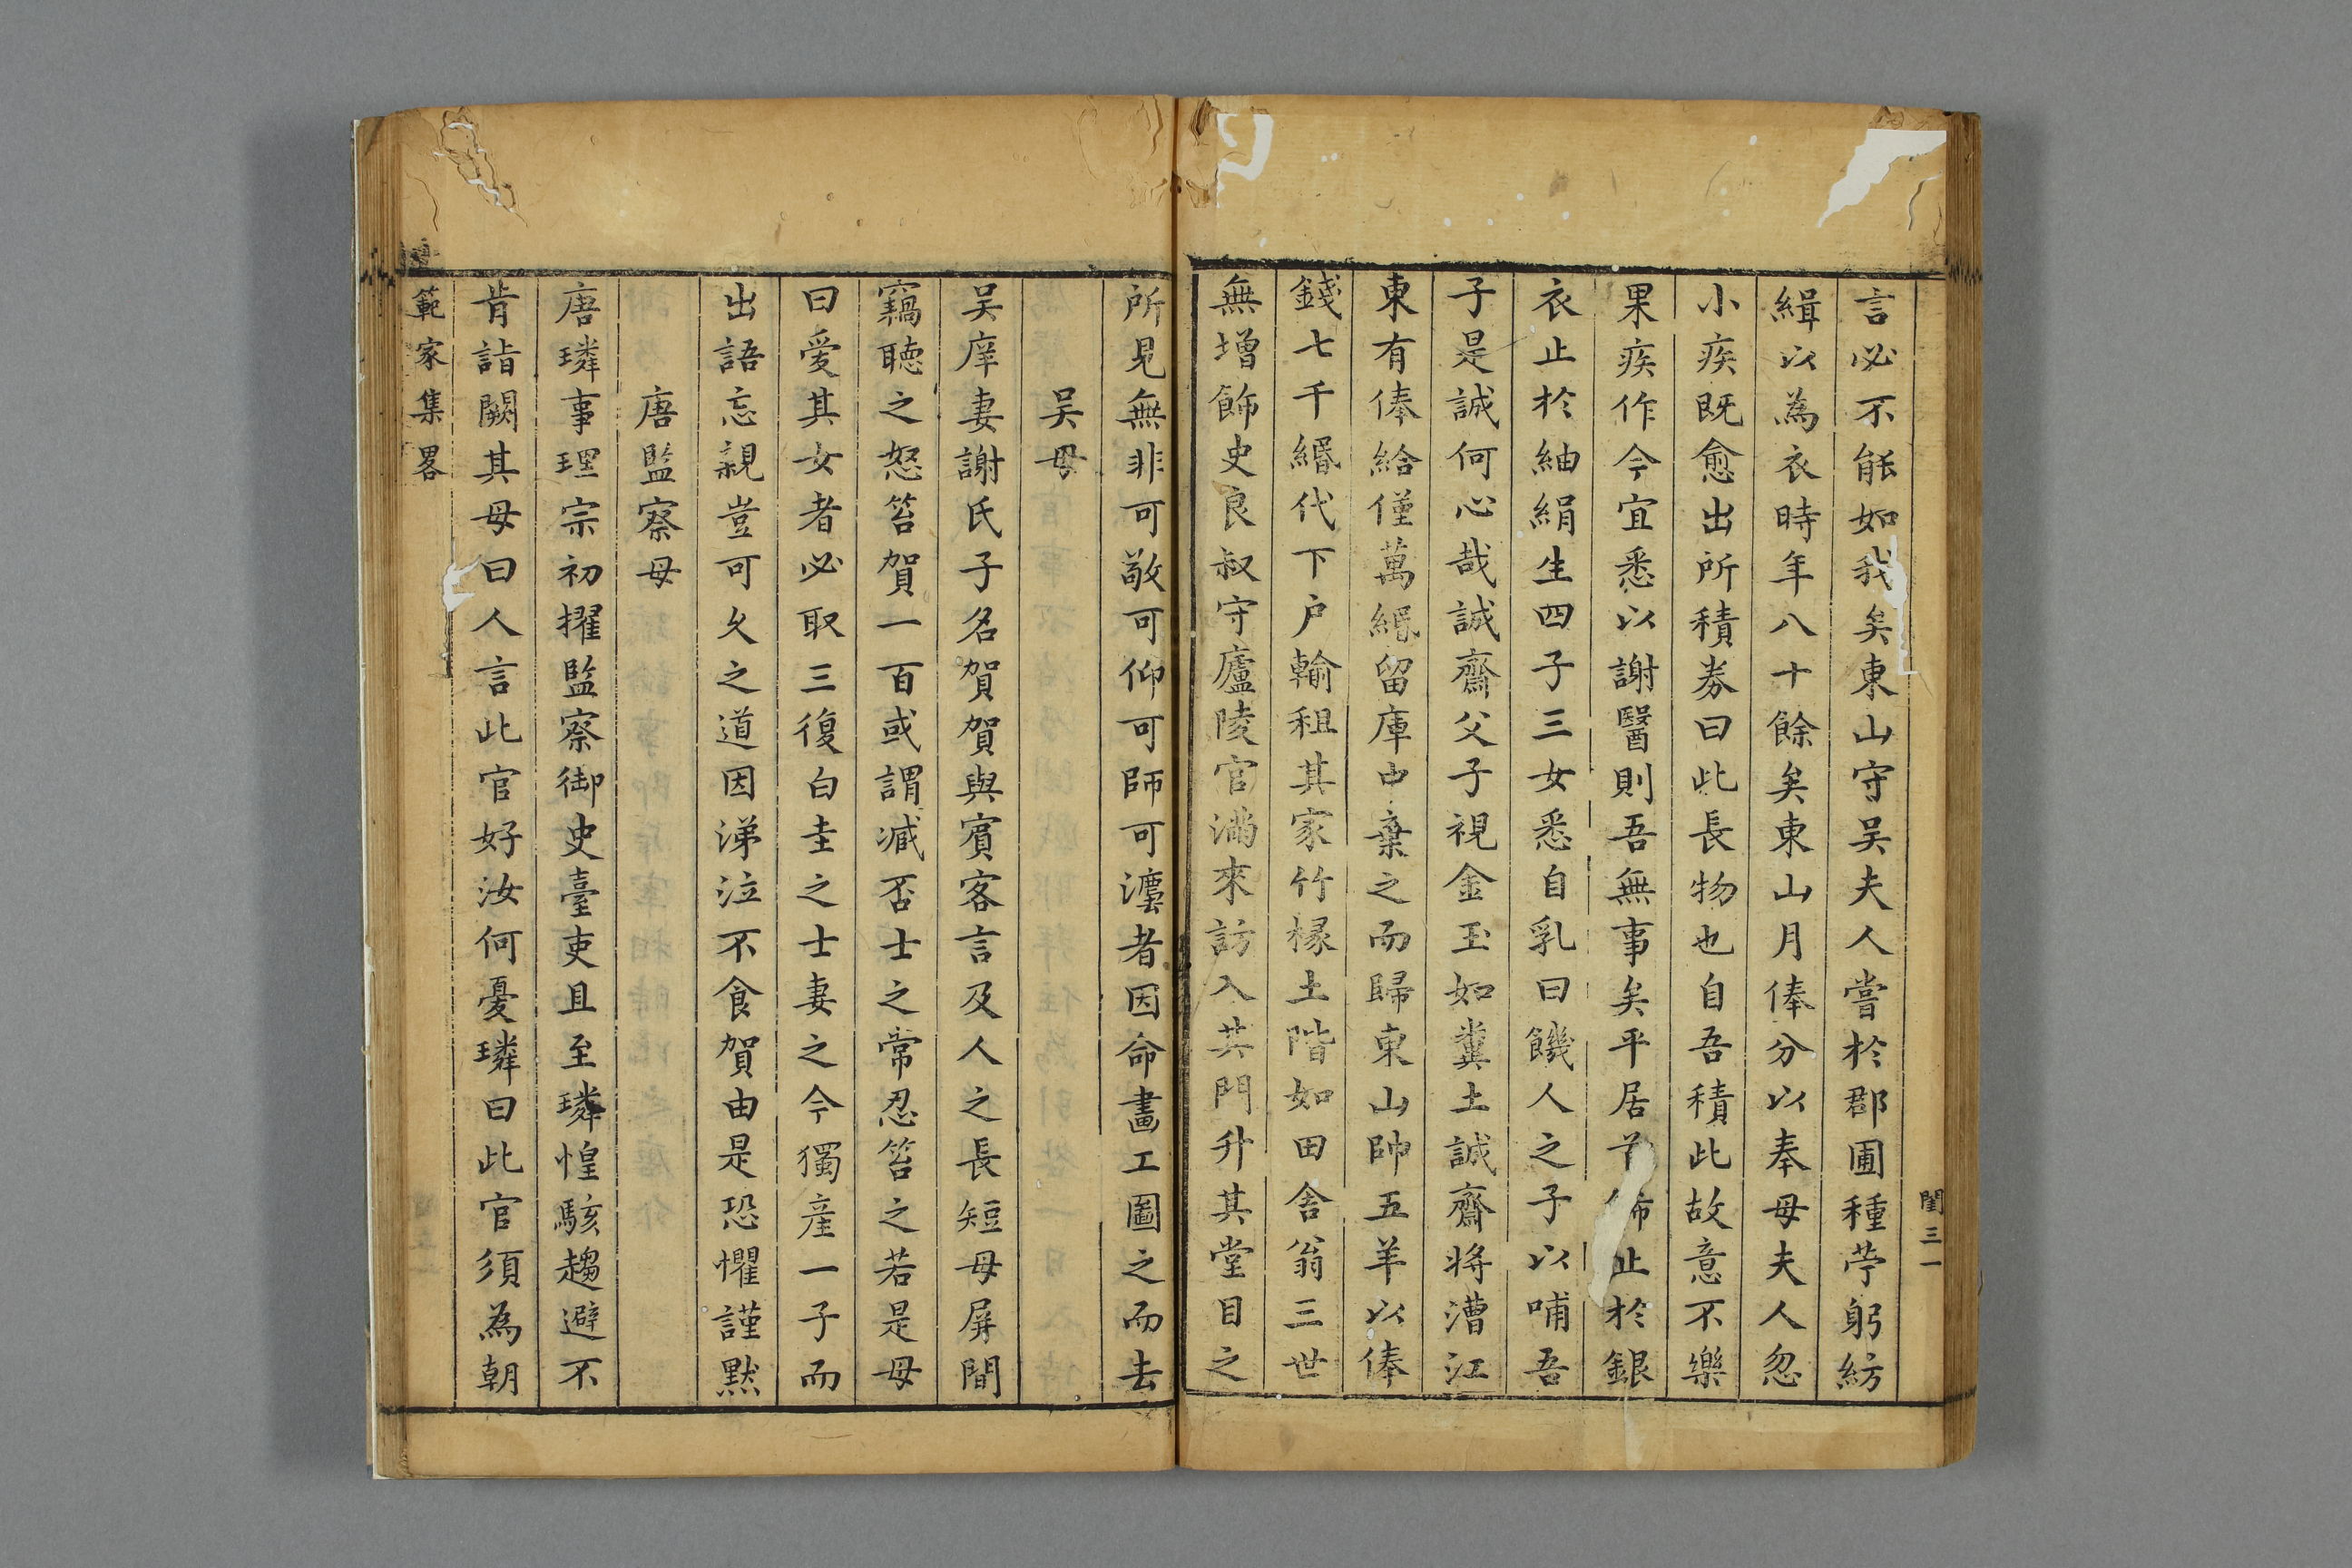 閨三一
言必不能如我矣東山守吴夫人嘗於郡圃種苧躬紡
緝以為衣時年八十餘矣東山月俸分以奉母夫人忽
小疾既愈出所積券曰此長物也自吾積此故意不樂
果疾作今宜悉以謝醫則吾無事矣平居首飾止於銀
衣止於紬絹生四子三女悉自乳曰饑人之子以哺吾
子是誠何心哉誠齋父子視金玉如糞土誠齋將漕江
東有俸給僅萬緡留庫中棄之而歸東山帥五羊以俸
錢七千緡代下户輸租其家竹椽土階如田舍翁三世
無增飾史良叔守廬陵官滿來訪入其門升其堂目之
所見無非可敬可仰可師可灋者因命畫工圖之而去
吴母
吴庠妻謝氏子名賀賀與賓客言及人之長短母屏間
竊聴之怒笞賀一百或謂臧否士之常忍笞之若是母
曰愛其女者必取三復白圭之士妻之今獨産一子而
出語忘親豈可久之道因涕泣不食賀由是恐懼謹默
唐監察母
唐璘事理宗初擢監察御史臺吏且至璘惶駭趨避不
肯詣闕其母曰人言此官好汝何憂璘曰此官須為朝
範家集畧